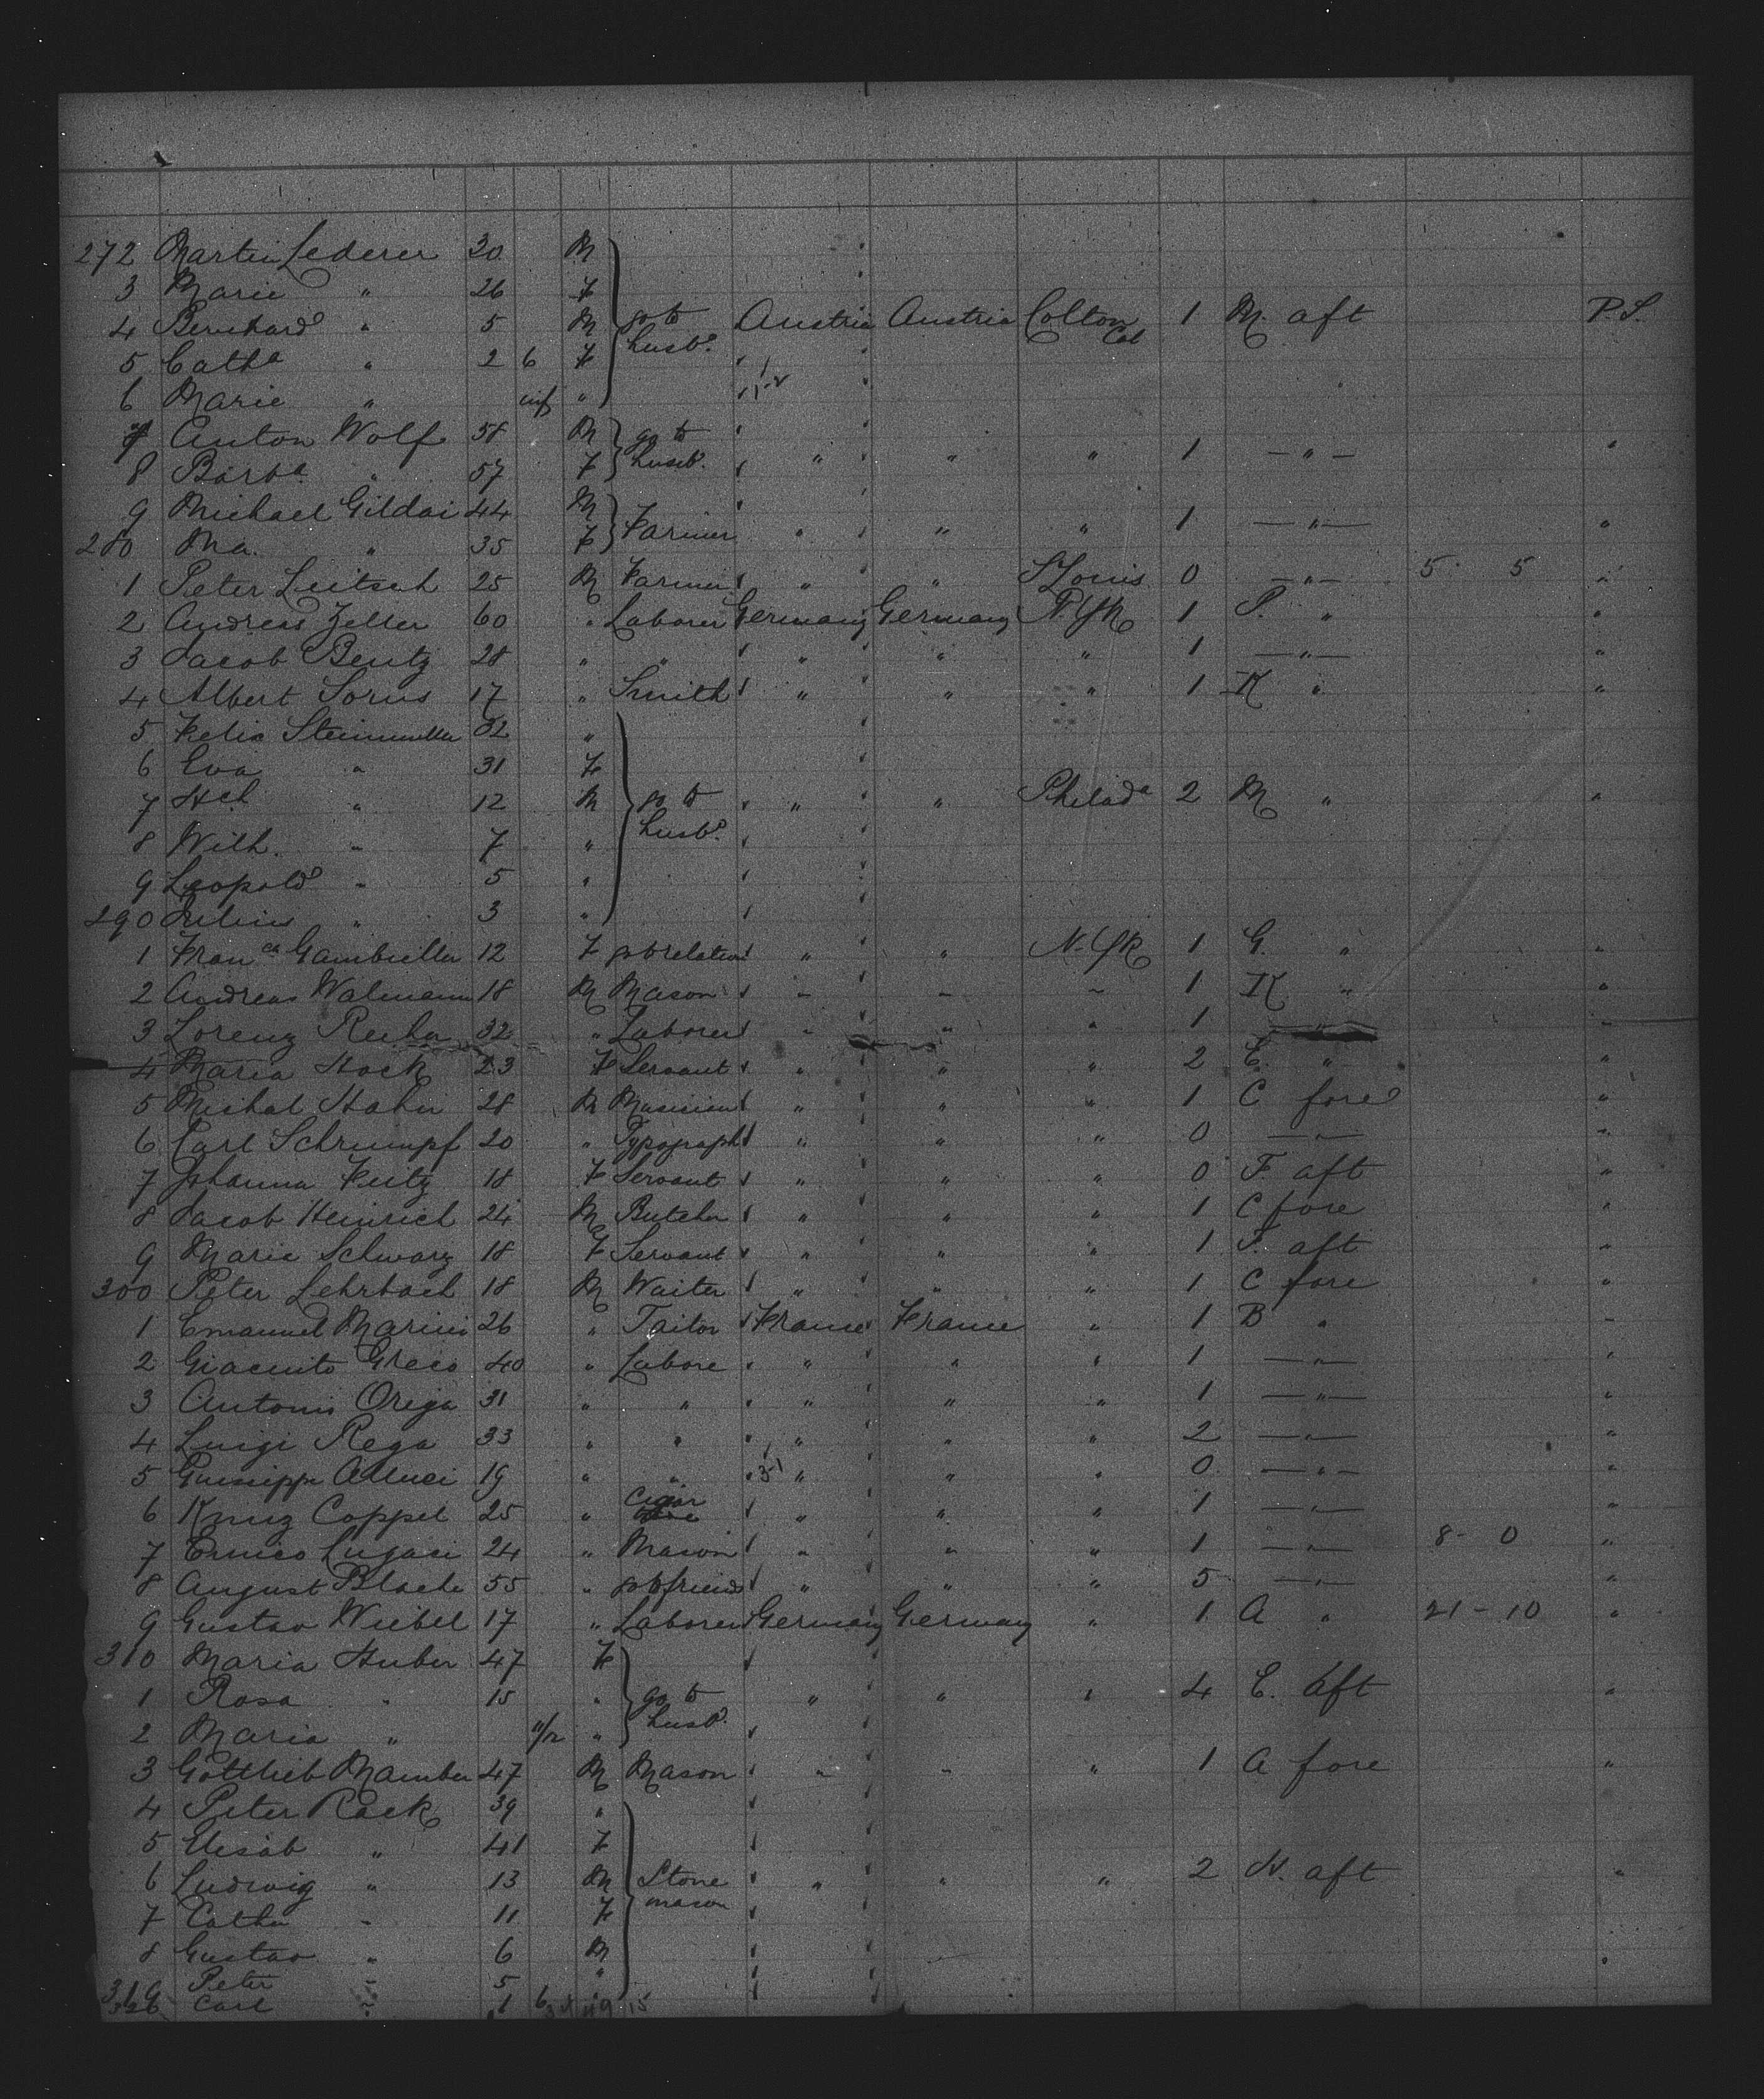 272 Martin Lederer 30 M
3 Marie " 26 F
4 Bernhard " 5 M go to husbd. Austria Austria Colton Cal 1 M. aft P.S.
5 Catha " 2 6 F
6 Marie " inf "
7 Anton Wolf 58 M go to
8 Barba. " 57 F husbd. " " " 1 — " — "
9 Michael Gildai 44 M
280 Ma. " 35 F Farmer " " " 1 — " — "
1 Peter Leitsch 25 M Farmer " " St Louis 0 — " — 5 5 "
2 Andreas Zeller 60 " Laborer Germany Germany N. York 1 P. " "
3 Jacob Bentz 28 " " " " " 1 — " — "
4 Albert Sorns 17 " Smith " " " 1 K " "
5 Felix Steinmuller 32 "
6 Eva " 31 F
7 Hch " 12 M go to husbd. " " Philada 2 M " "
8 Wilh. " 7 "
9 Leopold " 5 "
290 Julius " 3 "
1 Franca Gambieller 12 F go to relation " " N. York 1 G. " "
2 Andreas Walmann 18 M Mason " " " 1 K " "
3 Lorenz 32 " Laborer " " " 1 "
4 Maria Hock 23 F Servant " " " 2 E. " "
5 Michal Hahn 28 M Musician " " " 1 C fore "
6 Carl Schrumpf 20 " Typograph " " " 0 — " — "
7 Johanna Feitz 18 F Servant " " " 0 F. aft "
8 Jacob Heinrich 24 M Butcher " " " 1 C fore "
9 Marie Schwarz 18 F Servant " " " 1 P. aft "
300 Peter Lehrbach 18 M Waiter " " " 1 C fore "
1 Emanuel Marini 26 " Tailor France France " 1 B " "
2 Giacinto Greco 40 " Labore " " " 1 — " — "
3 Antonio Origa 31 " " " " " 1 — " — "
4 Luigi Rega 33 " " " " " 2 — " — "
5 Giuseppe 19 " " " " " 0 — " — "
6 Coppel 25 " Cigar " " " 1 — " — "
7 Enrico Lugaci 24 " Mason " " " 1 — " — 8 - 0 "
8 August Blache 55 " go to friend " " " 5 — " — "
9 Gustav Weibel 17 " Laborer Germany Germany " 1 A " 21 - 10 "
310 Maria Huber 47 F
1 Rosa " 15 " go to husbd. " " " 4 E. aft "
2 Maria " 11/12 "
3 Gottlieb Mamber 47 M Mason " " " 1 A fore "
4 Peter Rack 39 "
5 Elisab " 41 F
6 Ludwig " 13 M Stone mason " " " 2 N. aft "
7 Catha " 11 F
8 Gustav " 6 M
319 Peter " 5 "
Carl " 1 6